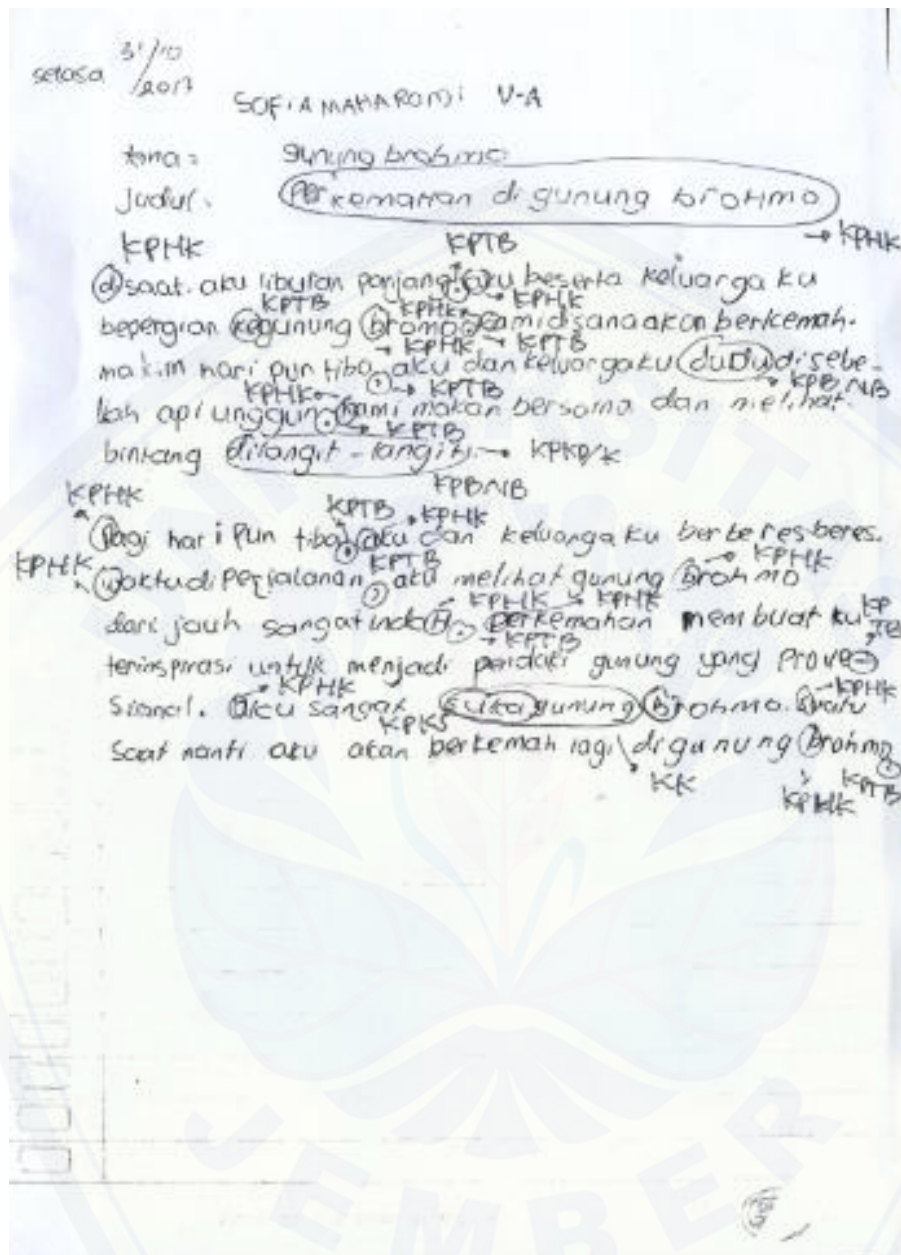 selasa 31/10/2017
SOFIA MAHAROMI V-A
tema: gunung brohmo
Judul. Perkemahan di gunung brohmo
KPHK KPTB → KPHK
disaat aku liburan panjang, aku beserta keluarga ku
KPTB KPHK KPHK
bepergian kegunung bromo kami disana akan berkemah.
KPHK KPTB
malam hari pun tiba aku dan keluargaku dudu disebe-
KPHK KPTB KPB/NB
lah api unggun. kami makan bersama dan melihat
KPTB
bintang dilangit-langit. → KPKD/K
KPHK KPTB KPHK KPB/NB
Pagi hari pun tiba, aku dan keluarga ku berberesberes.
KPHK KPTB KPHK
waktu diperjalanan, aku melihat gunung Brohmo
KPHK KPHK KPTB
dari jauh sangat indah. perkemahan membuat ku
KPTB
terinspirasi untuk menjadi pendaki gunung yang Prove-
KPHK KPHK
sional. Aku sangat suka gunung Brohmo. Suatu
KPKS
saat nanti aku akan berkemah lagi digunung Brohmo.
KK KPHK KPTB
JEMBER